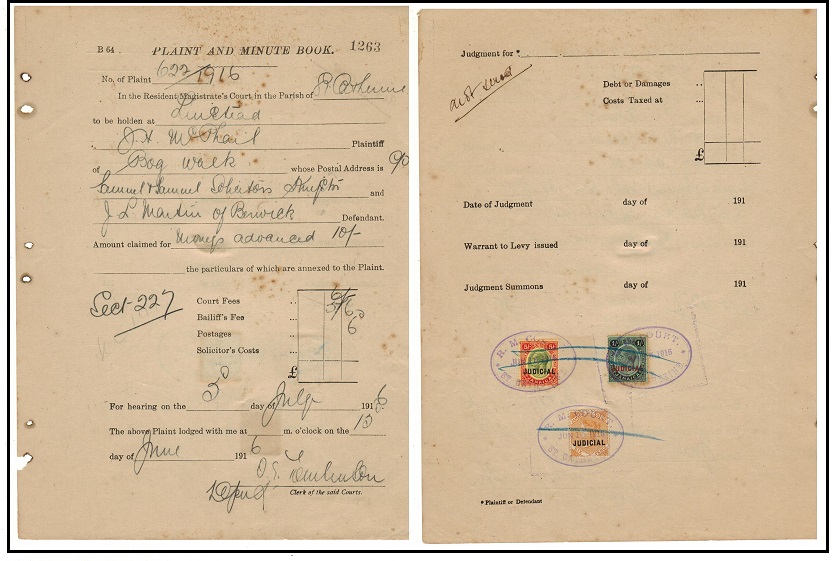 B 64. PLAINT AND MINUTE BOOK. 1263
No. of Plaint 622/1916
In the Resident Magistrate's Court in the Parish of St Catherine
to be holden at Linstead
J. H. McPhail Plaintiff
of Bog Walk whose Postal Address is c/o
Samuel & Samuel Solicitors Kingston and
J L Martin of Berwick Defendant.
Amount claimed for Moneys advanced 10/-
the particulars of which are annexed to the Plaint.
Sect-227
Court Fees ..
Bailiff's Fee ..
Postages .. 6
Solicitor's Costs ..
£
For hearing on the 3 day of July 1916.
The above Plaint lodged with me at m. o'clock on the 13
day of June 1916
Tomlinson
Clerk of the said Courts.
Judgment for *
not served
Debt or Damages ..
Costs Taxed at ...
£
Date of Judgment day of 191
Warrant to Levy issued day of 191
Judgment Summons day of 191
R. M. COURT.
JUDICIAL
COURT.
1916
JUDICIAL
R. M. COURT.
JUN 1916
JUDICIAL
* Plaintiff or Defendant